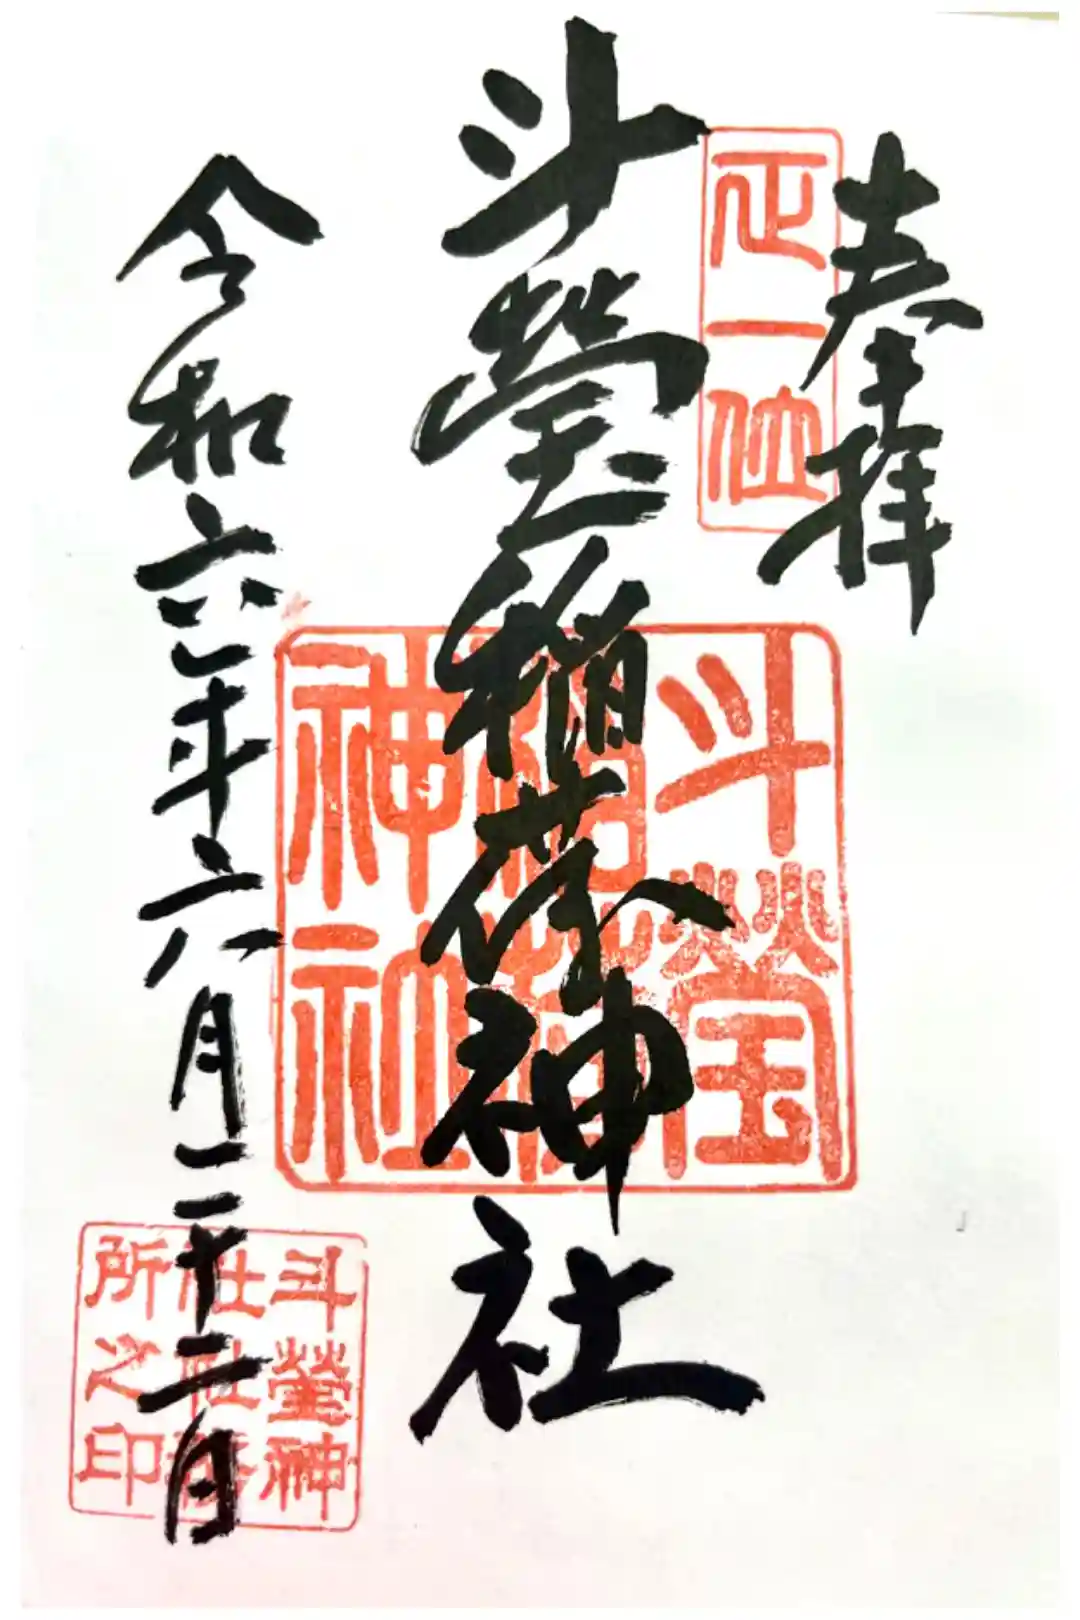 奉拝
正一位
斗瑩稲荷神社
斗瑩稲荷神社
令和六年六月二十二日
斗瑩神
社社務
所之印